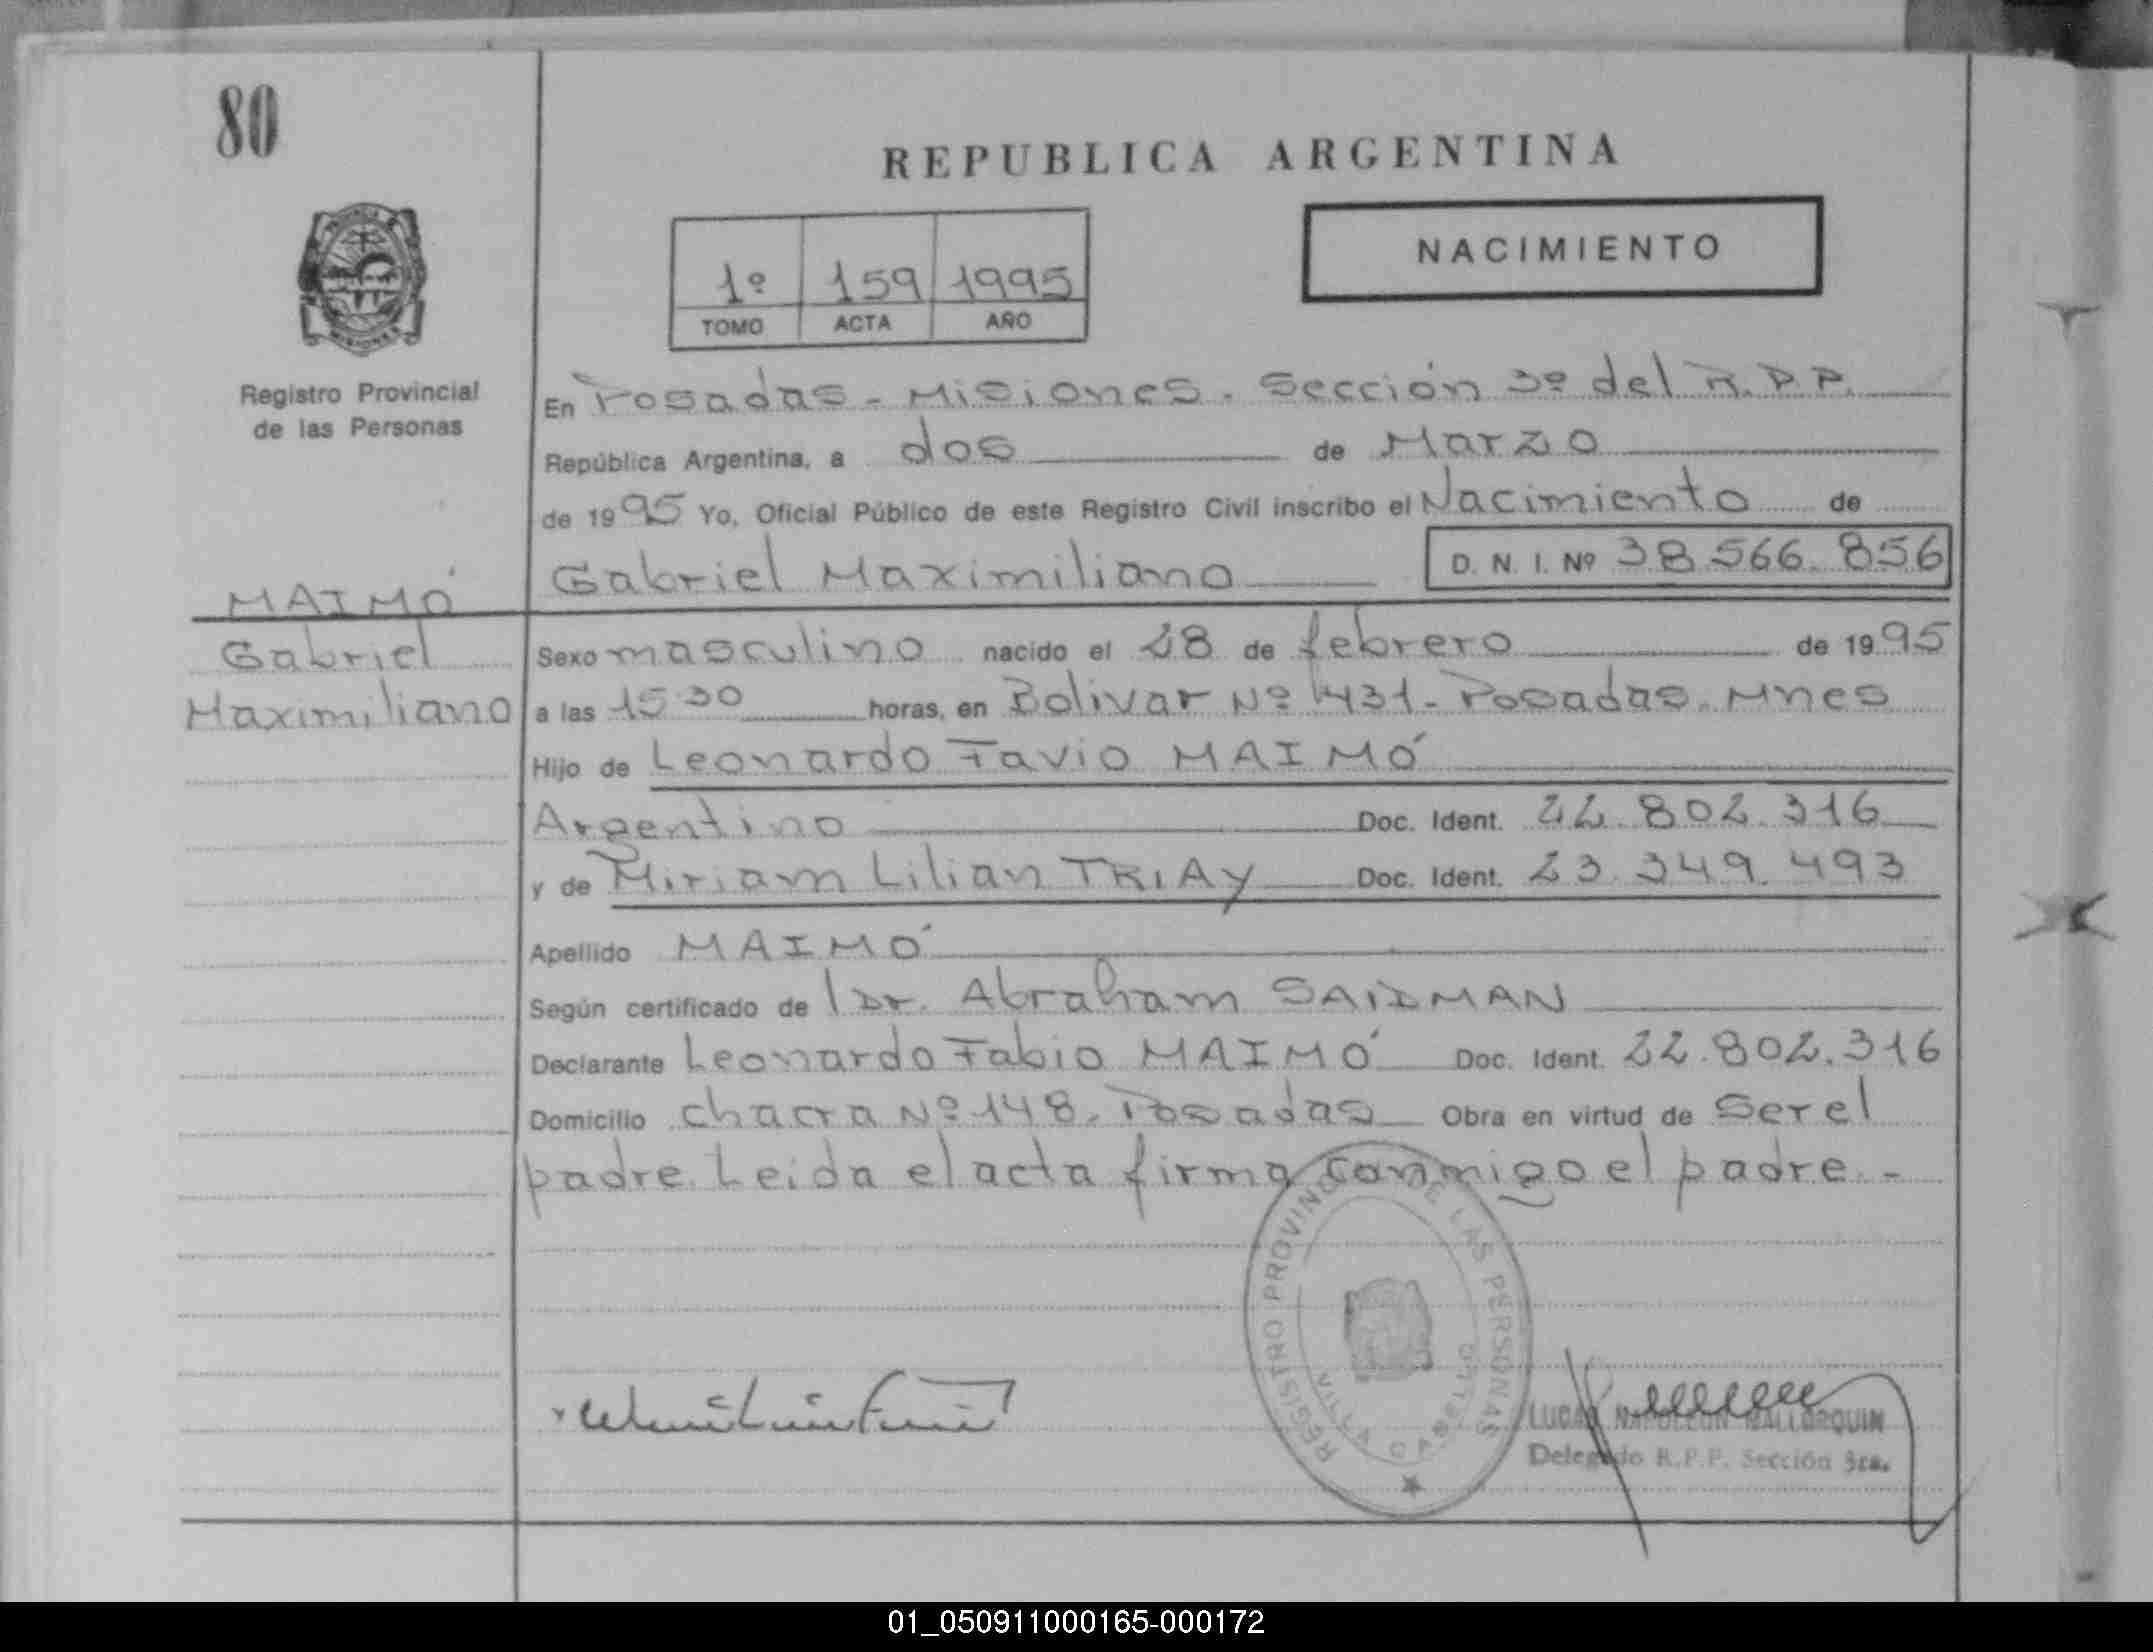 80
REPUBLICA ARGENTINA
NACIMIENTO
1º 159 1995
TOMO ACTA AÑO
Registro Provincial
de las Personas
En Posadas - Misiones. Sección 3º del R.P.P.
República Argentina, a dos de Marzo
de 1995 Yo, Oficial Público de este Registro Civil inscribo el Nacimiento de
Gabriel Maximiliano D. N. I. Nº 38.566.856
MAIMÓ
Gabriel
Maximiliano
Sexo masculino nacido el 28 de febrero de 1995
a las 15 30 horas, en Bolivar Nº 1431 - Posadas. Mnes
Hijo de Leonardo Favio MAIMÓ
Argentino Doc. Ident. 22.802.316
y de Miriam Lilian TRIAY Doc. Ident. 23.349.493
Apellido MAIMÓ
Según certificado de l Dr. Abraham SAIDMAN
Declarante Leonardo Fabio MAIMÓ Doc. Ident. 22.802.316
Domicilio chacra Nº 148. Posadas Obra en virtud de Ser el
padre. Leida el acta firma conmigo el padre. -
REGISTRO PROVINC DE LAS PERSONAS
VILLA CABELLO
LUCAS NAPOLEON MALLORQUIN
Delegado R.P.P. Sección 3ra.
01_050911000165-000172